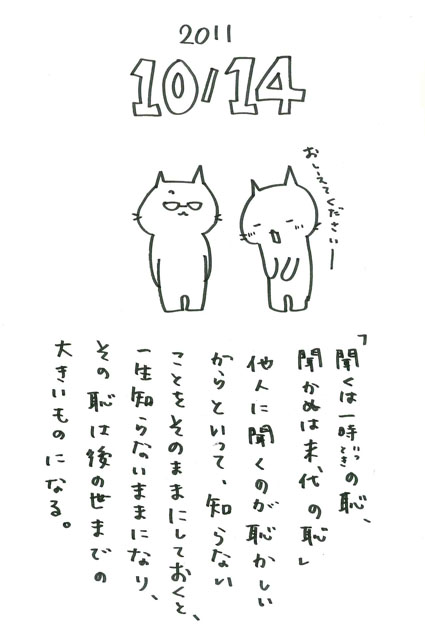 2011
10/14
おしえてくださいー
「聞くは一時いっときの恥、
聞かぬは末代の恥」
他人に聞くのが恥かしい
からといって、知らない
ことをそのままにしておくと、
一生知らないままになり、
その恥は後の世までの
大きいものになる。